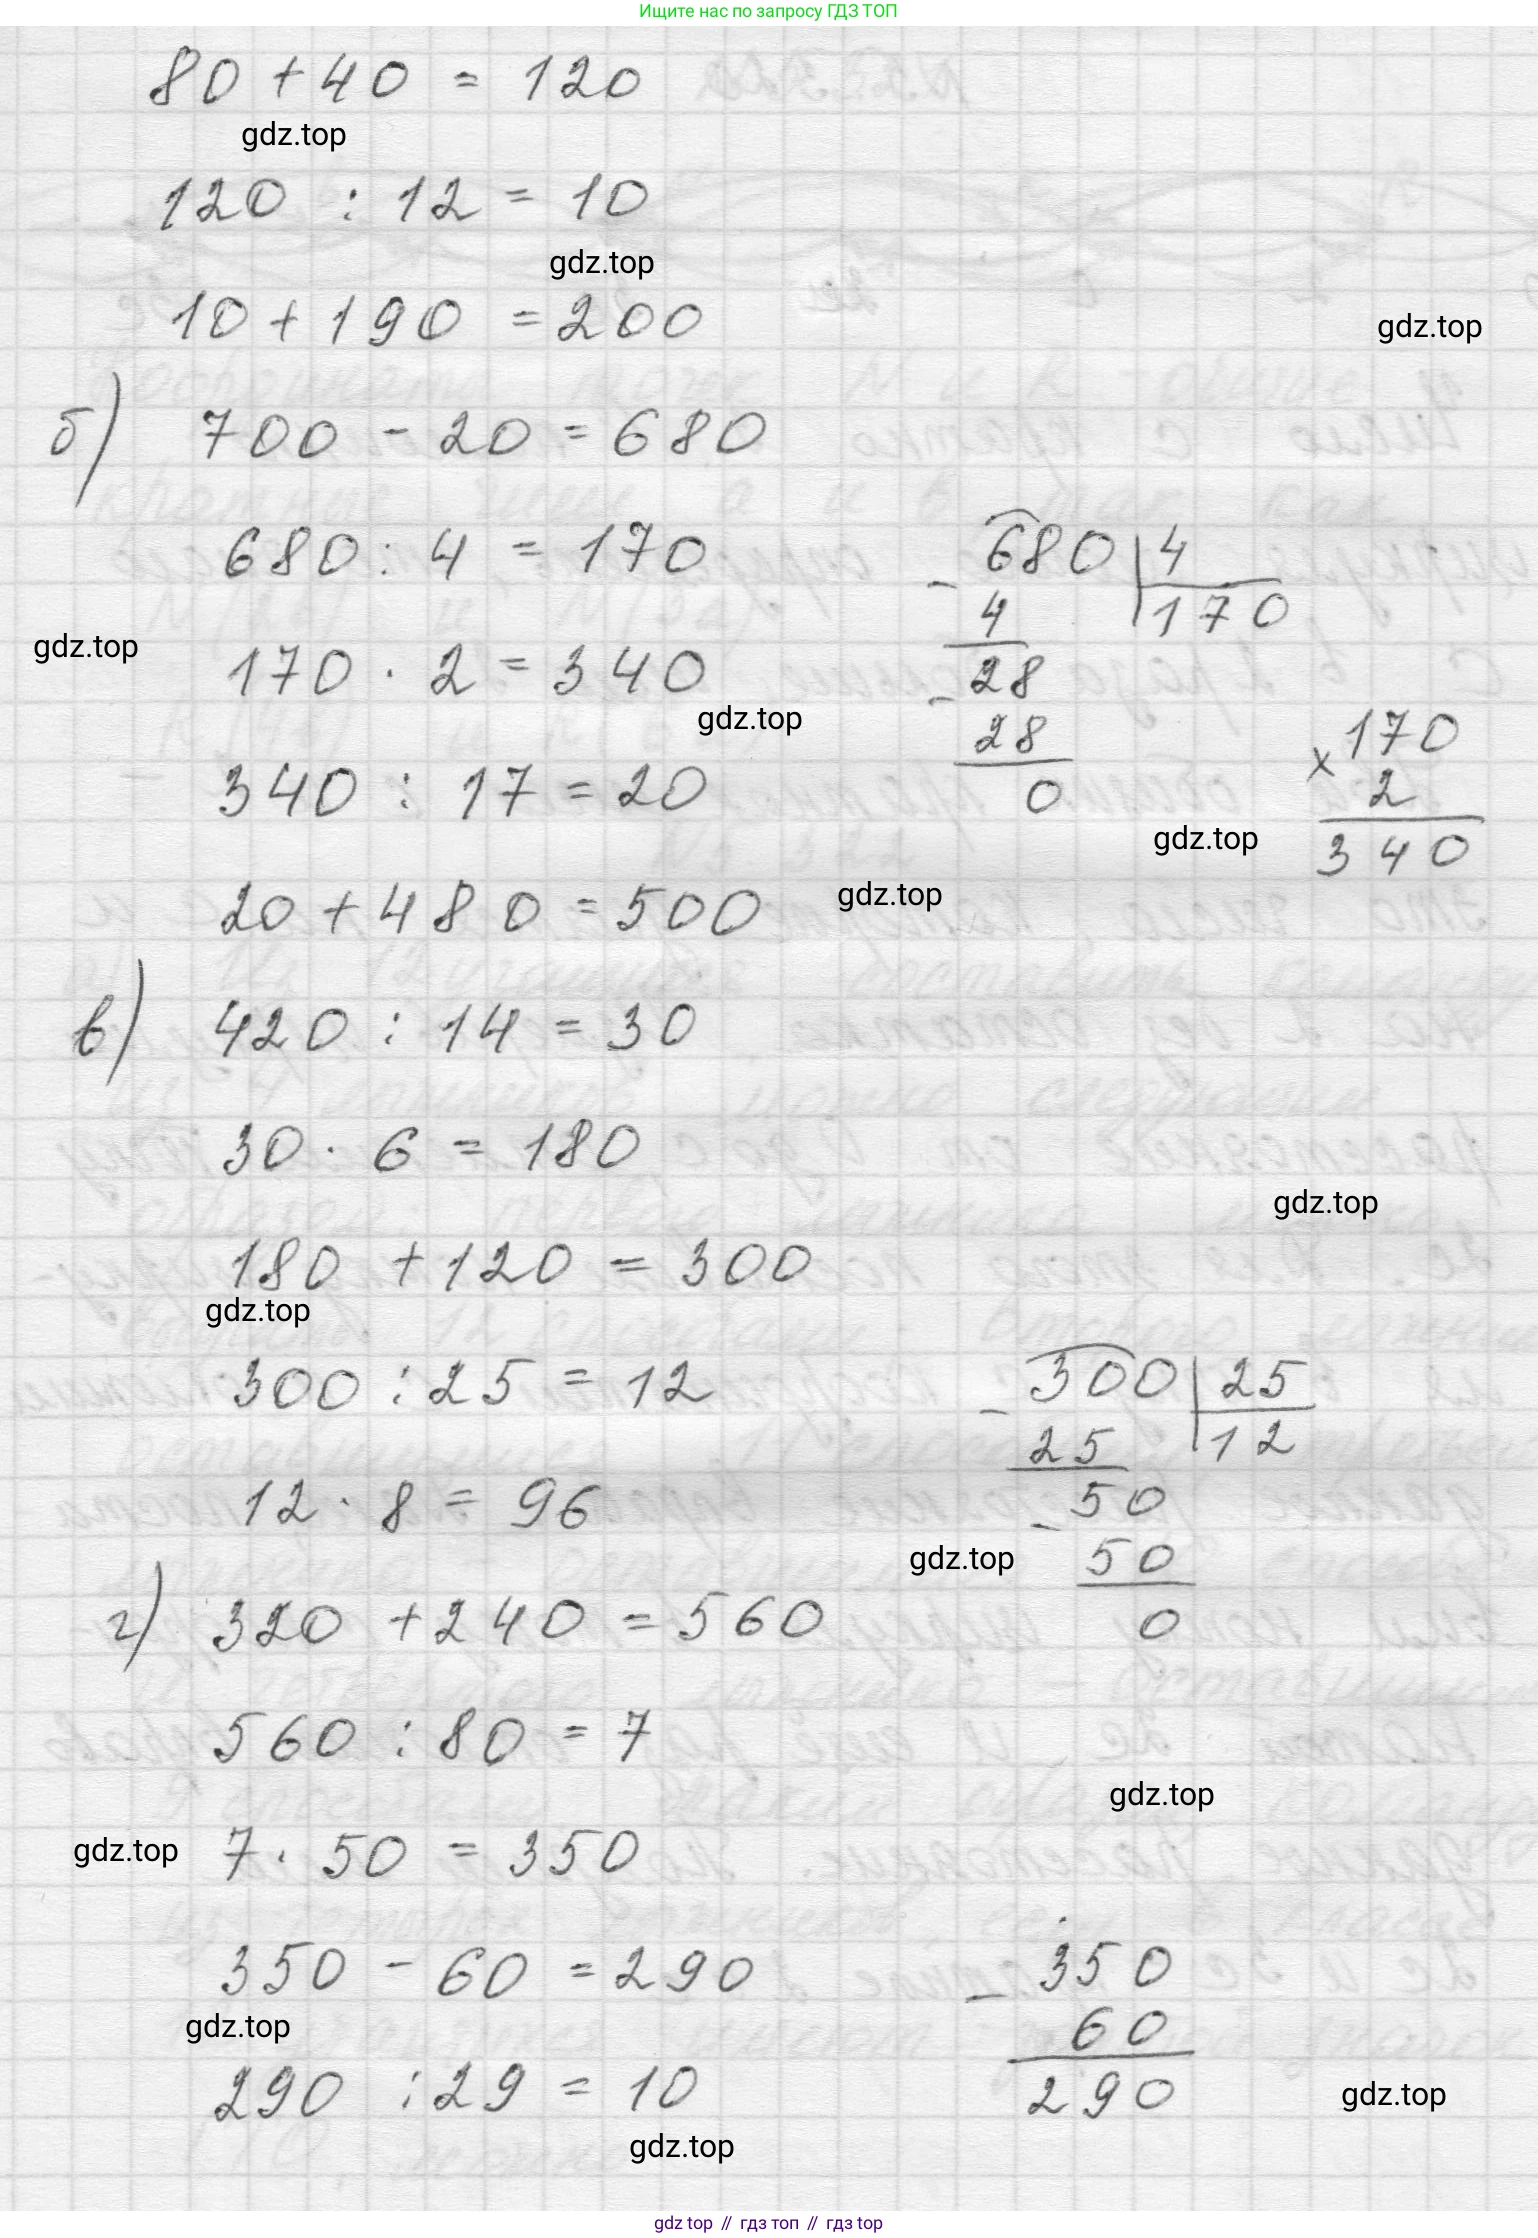 Ищите нас по запросу ГДЗ ТОП
80 + 40 = 120
gdz.top
120 : 12 = 10
gdz.top
10 + 190 = 200
gdz.top
б) 700 - 20 = 680
680 : 4 = 170
680 | 4
- 4 170
gdz.top
170 · 2 = 340
- 28
gdz.top
28
170
340 : 17 = 20
0
× 2
gdz.top
340
20 + 480 = 500
gdz.top
в) 420 : 14 = 30
30 · 6 = 180
gdz.top
180 + 120 = 300
gdz.top
300 : 25 = 12
300 | 25
- 25 12
12 · 8 = 96
- 50
gdz.top
50
0
г) 320 + 240 = 560
560 : 80 = 7
gdz.top
gdz.top
7 · 50 = 350
350 - 60 = 290
350
- 60
gdz.top
290
290 : 29 = 10
gdz.top
gdz.top
gdz top // гдз топ // гдз top